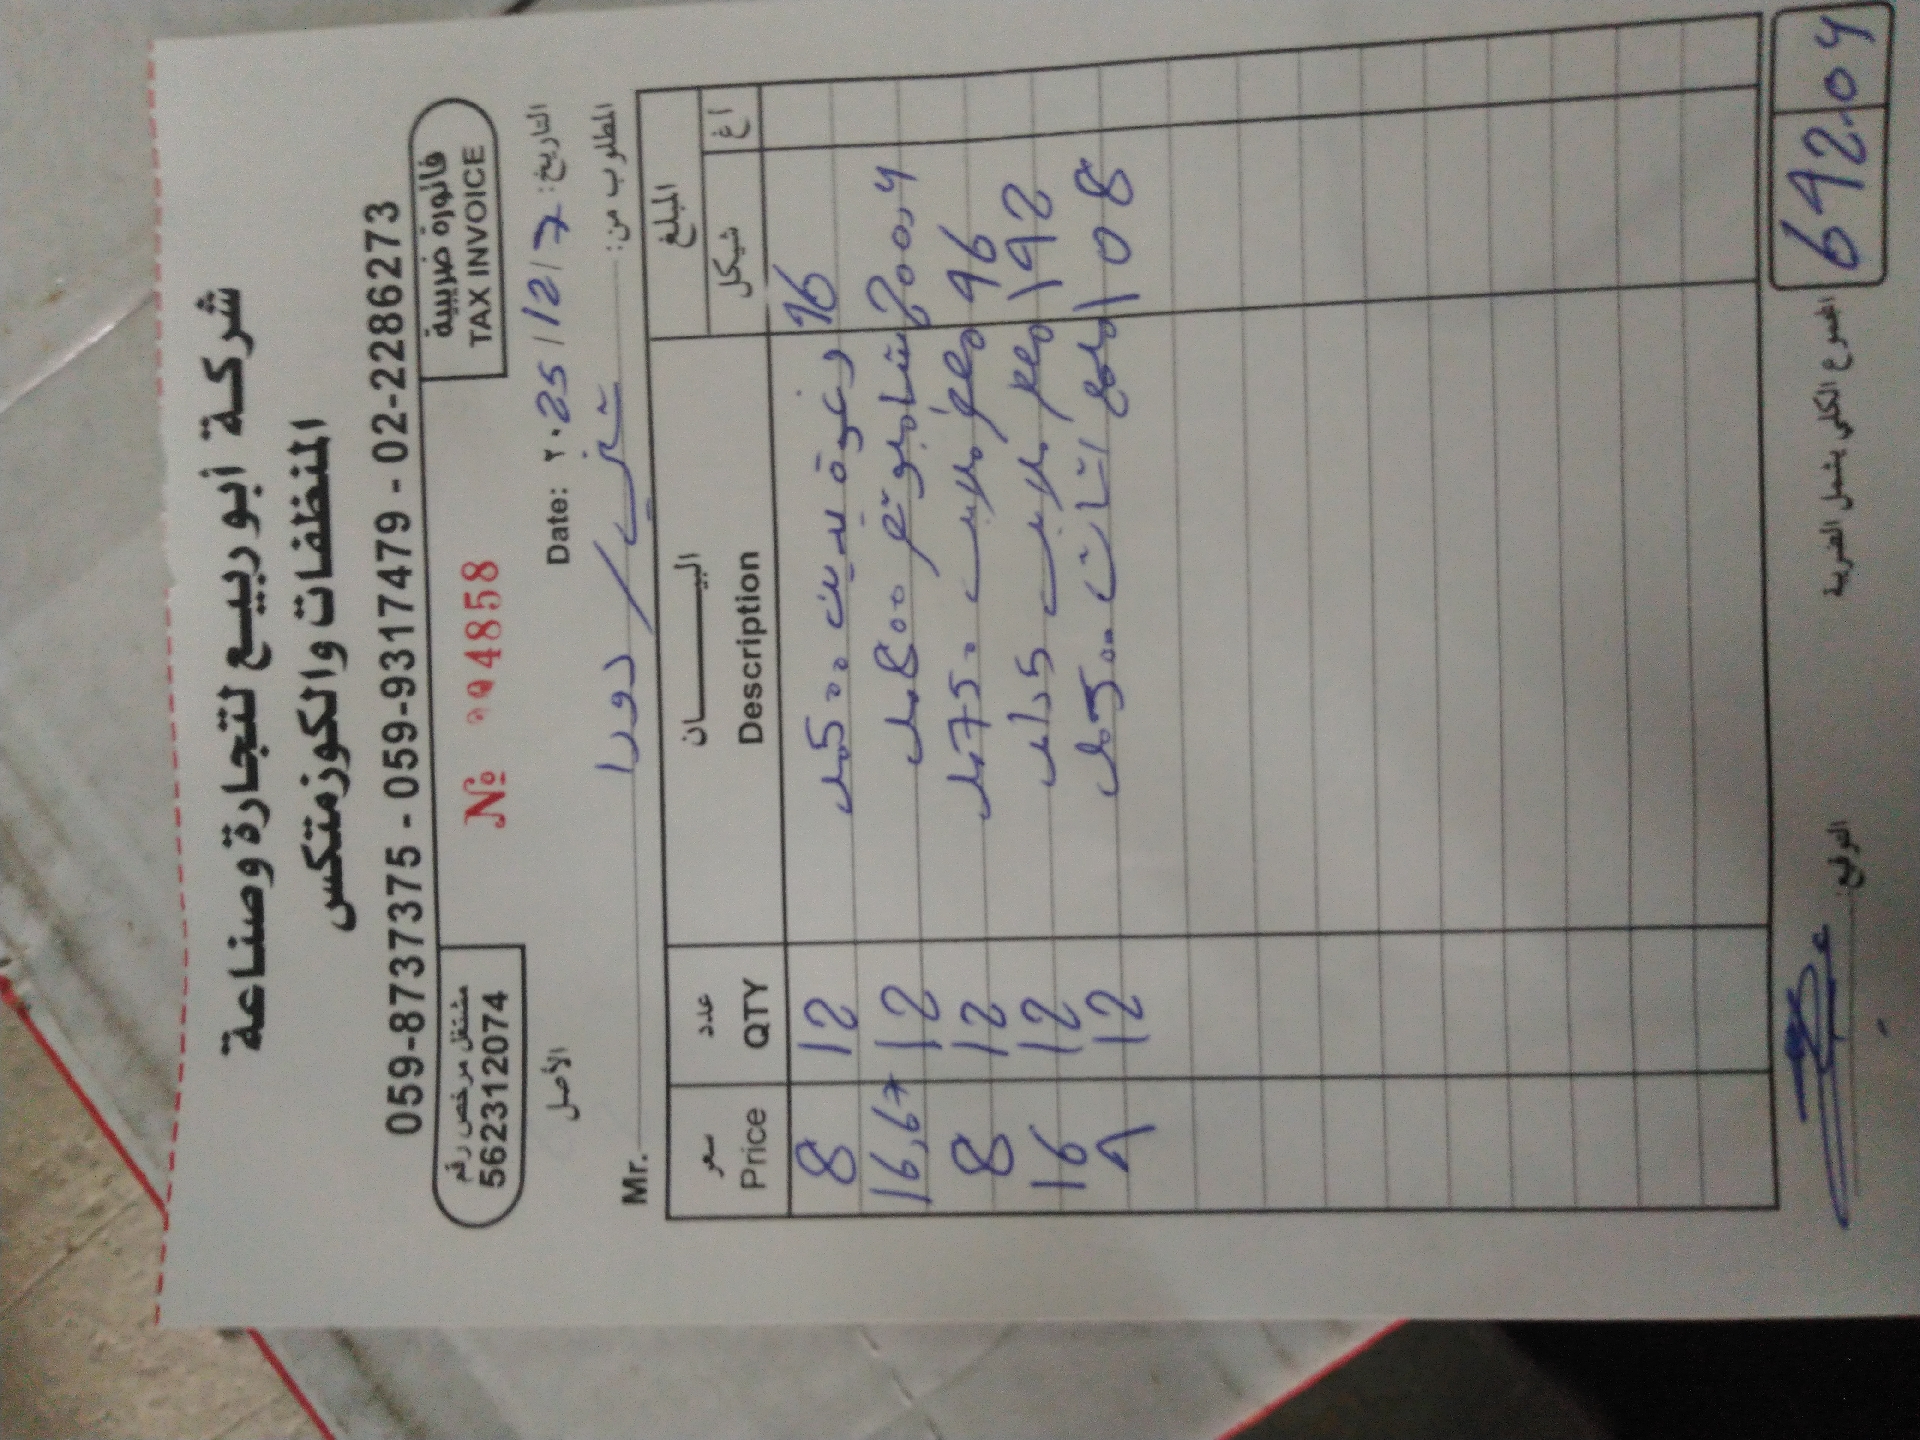 شركة ابو ربيع لتجارة وصناعة
المنظفات والكوزمتكس
059-8737375 - 059-9317479 - 02-2286273
فاتورة ضريبية
TAX INVOICE
№ 004858
مشتغل مرخص رقم
562312074
التاريخ: 2025/12/7 Date:
الأصل
المطلوب من: دورا Mr.
المبلغ البيــــــان عدد سعر
شيكل اغ Description QTY Price
96 رغوة تثبيت 500 مل 12 8
200.4 شامبو 800 مل 12 16,67
96 ملابس 750 مل 12 8
192 ملابس 5 لتر 12 16
108 ملمع اثاث 500 مل 12 9
المجموع الكلي يشمل الضريبة 692.04
التوقيع: